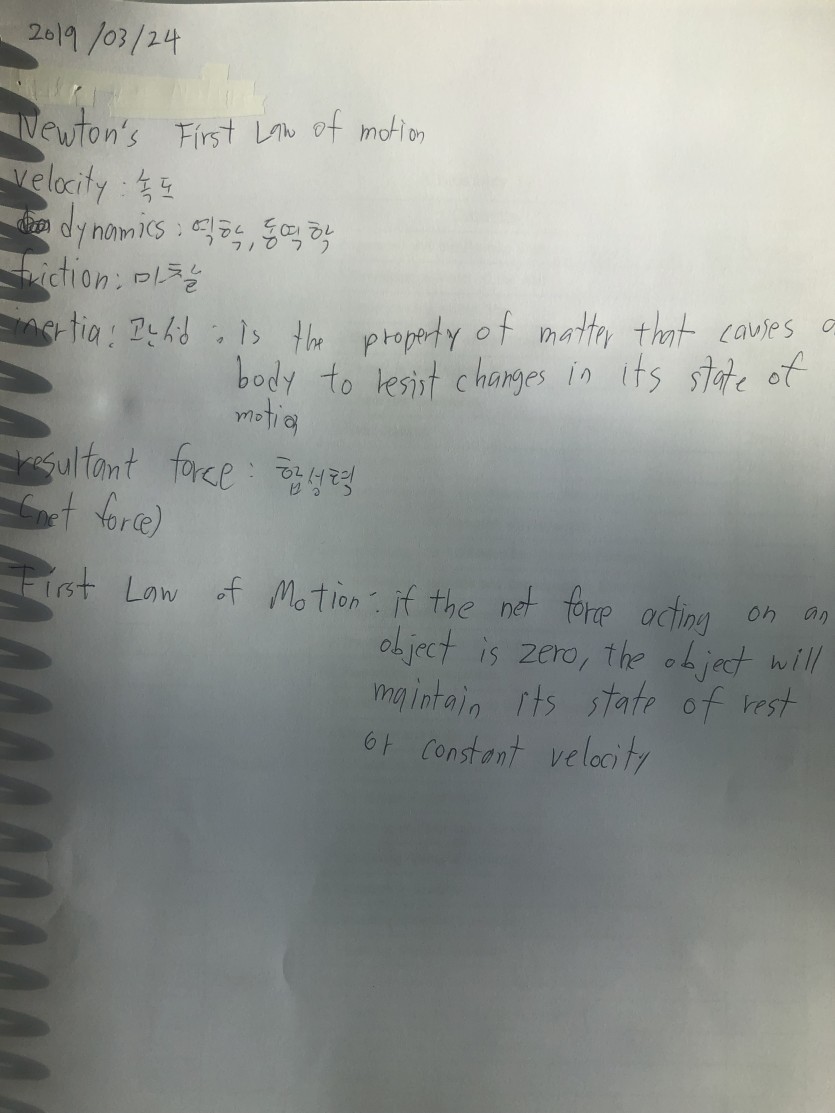 2019/03/24
Newton's First Law of motion
velocity : 속도
dynamics : 역학, 동역학
friction : 마찰
inertia : 관성 : is the property of matter that causes a
body to resist changes in its state of
motion
resultant force : 합성력
(net force)
First Law of Motion : if the net force acting on an
object is zero, the object will
maintain its state of rest
or constant velocity